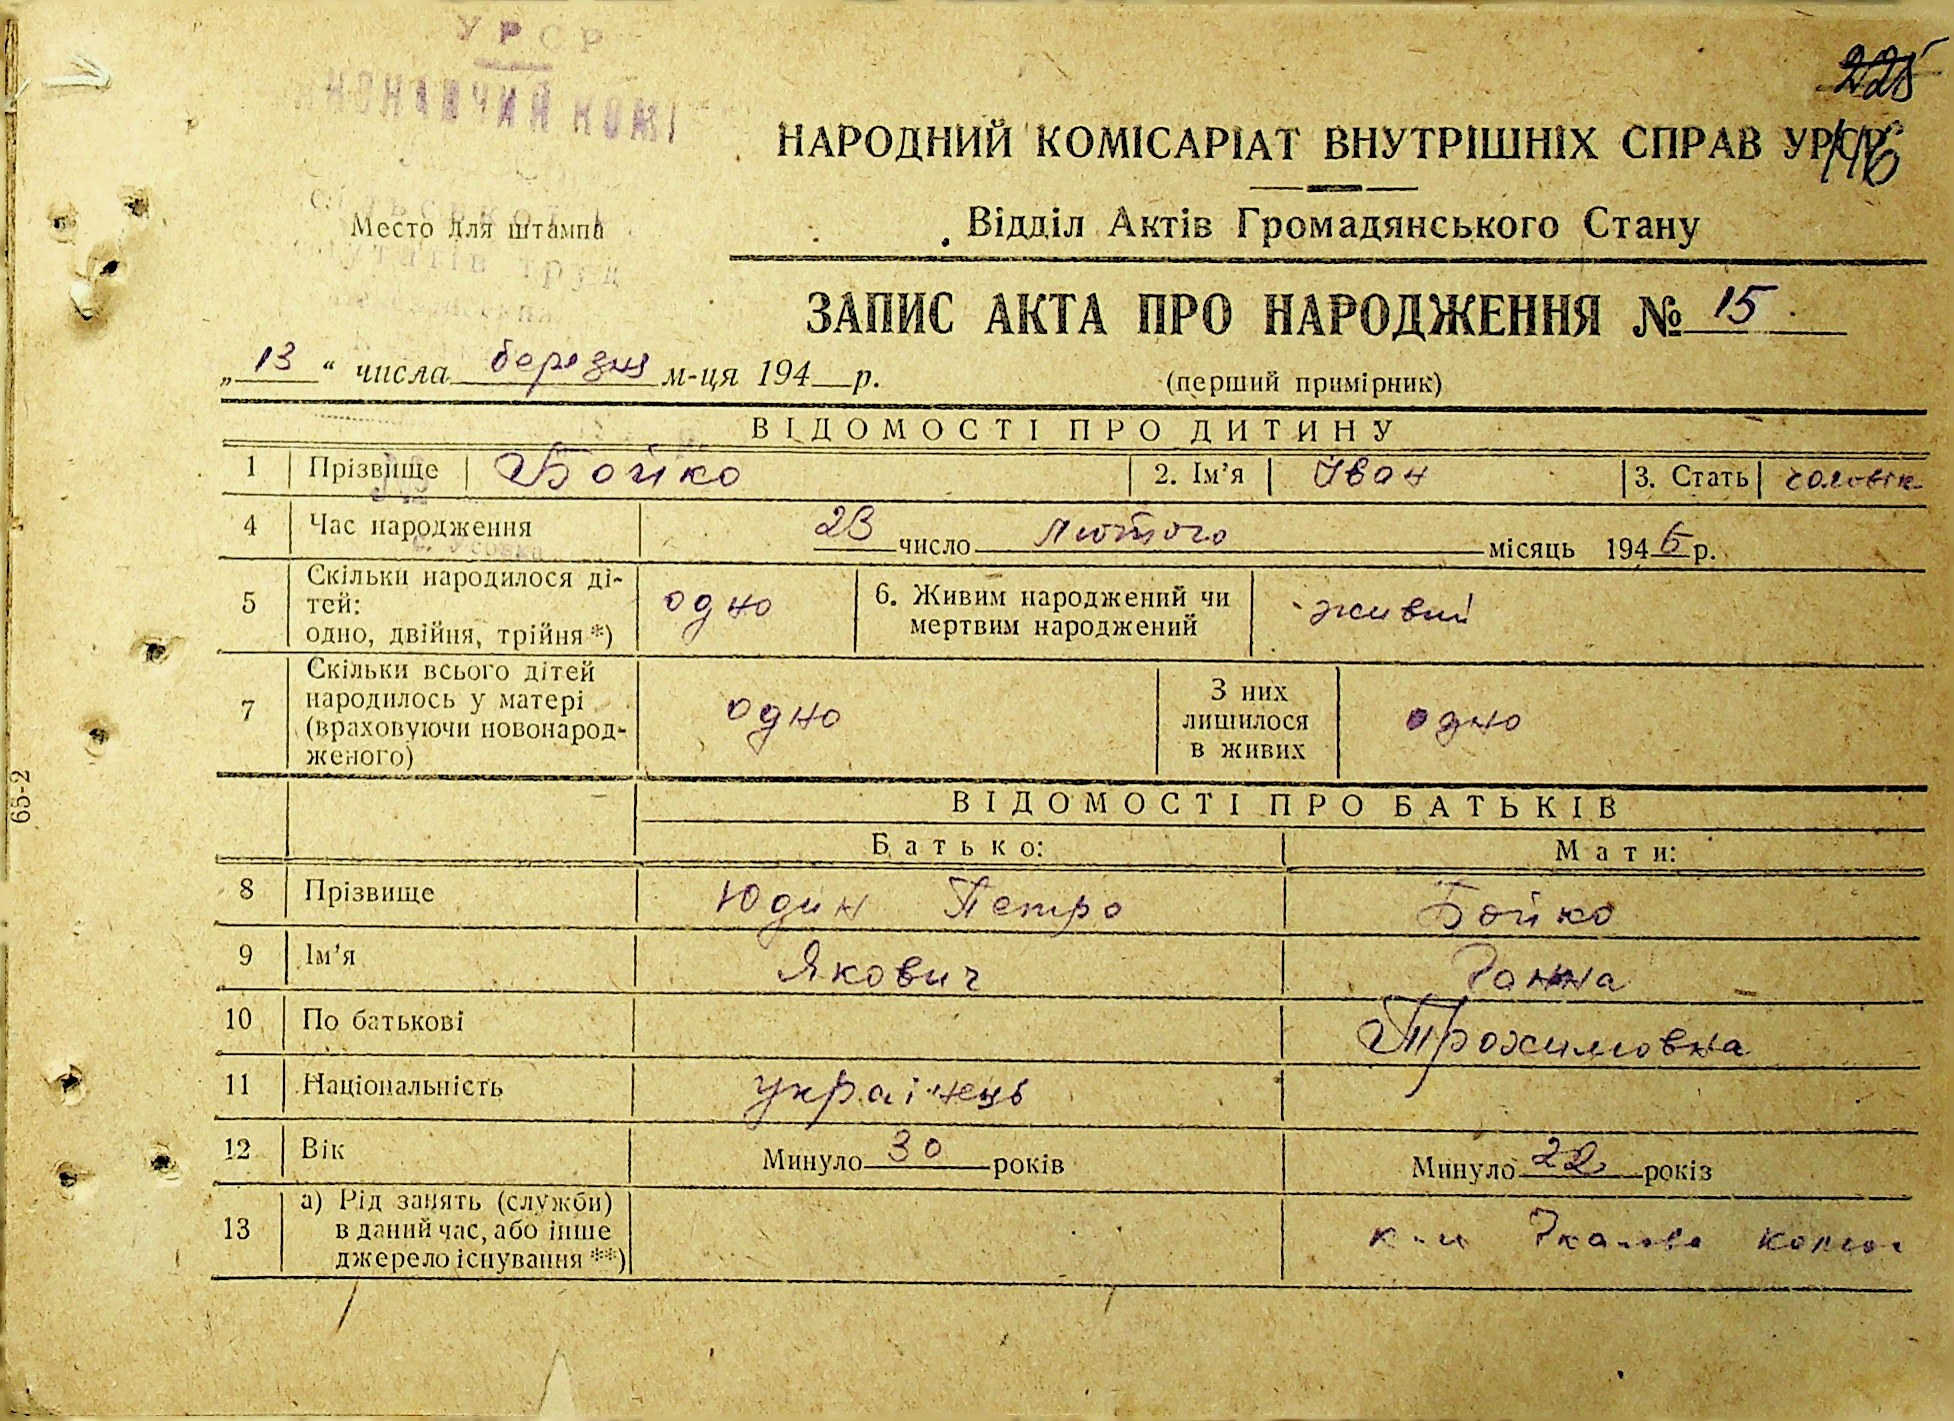 УРСР
225
НАРОДНИЙ КОМІСАРІАТ ВНУТРІШНІХ СПРАВ УРСР
116
Місто для штампа
Відділ Актів Громадянського Стану
ЗАПИС АКТА ПРО НАРОДЖЕННЯ № 15
„13“ числа березня м-ця 194 р.
(перший примірник)
ВІДОМОСТІ ПРО ДИТИНУ
1 Прізвище Бойко 2. Ім’я Іван 3. Стать чоловік
4 Час народження 23 число лютого місяць 1945 р.
5 Скільки народилося ді-
тей:
одно, двійня, трійня *) одно 6. Живим народжений чи
мертвим народжений живий
7 Скільки всього дітей
народилось у матері
(враховуючи новонарод-
женого) одно З них
лишилося
в живих одно
ВІДОМОСТІ ПРО БАТЬКІВ
Батько: Мати:
8 Прізвище Юдин Петро Бойко
9 Ім’я Якович Ганна
10 По батькові Трохимовна
11 Національність українець
12 Вік Минуло 30 років Минуло 22 років
13 а) Рід занять (служби)
в даний час, або інше
джерело існування **)
65-2